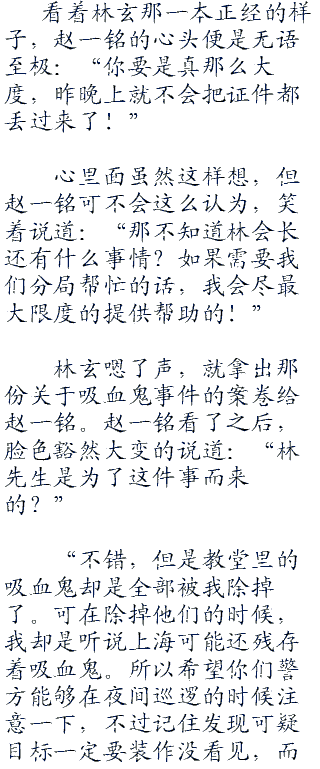 看着林玄那一本正经的样
子，赵一铭的心头便是无语
至极：“你要是真那么大
度，昨晚上就不会把证件都
丢过来了！”
心里面虽然这样想，但
赵一铭可不会这么认为，笑
着说道：“那不知道林会长
还有什么事情？如果需要我
们分局帮忙的话，我会尽最
大限度的提供帮助的！”
林玄嗯了声，就拿出那
份关于吸血鬼事件的案卷给
赵一铭。赵一铭看了之后，
脸色豁然大变的说道：“林
先生是为了这件事而来
的？”
“不错，但是教堂里的
吸血鬼却是全部被我除掉
了。可在除掉他们的时候，
我却是听说上海可能还残存
着吸血鬼。所以希望你们警
方能够在夜间巡逻的时候注
意一下，不过记住发现可疑
目标一定要装作没看见，而